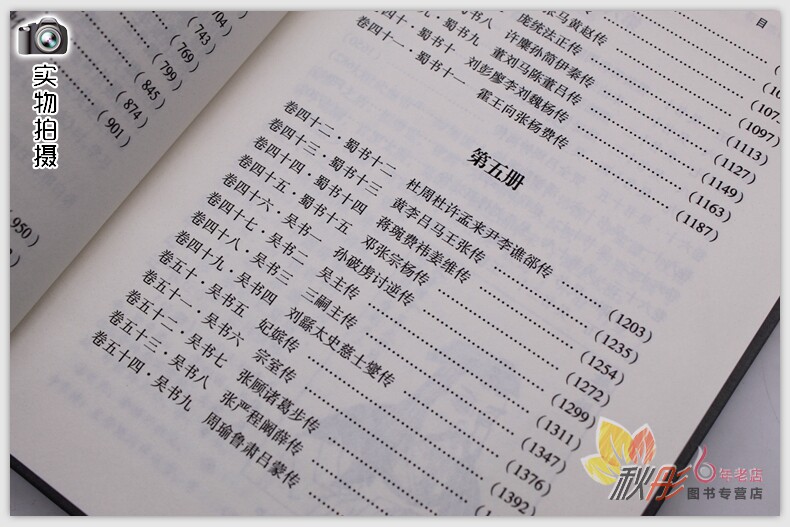 实物拍摄
704)
(743)
(769)
(799)
(845)
(874)
(901)
(950)
目
张马黄赵传
庞统法正传
书八 许麋孙简伊秦传
九·蜀书九 董刘马陈董吕传 (1097)
卷四十·蜀书十 刘彭廖李刘魏杨传 (1113)
卷四十一·蜀书十一 霍王向张杨费传 (1127)
(1149)
(1163)
(1187)
第五册
卷四十二·蜀书十二 杜周杜许孟来尹李谯郤传 (1203)
卷四十三·蜀书十三 黄李吕马王张传 (1235)
卷四十四·蜀书十四 蒋琬费祎姜维传 (1254)
卷四十五·蜀书十五 邓张宗杨传 (1272)
卷四十六·吴书一 孙破虏讨逆传 (1299)
卷四十七·吴书二 吴主传 (1311)
卷四十八·吴书三 三嗣主传 (1347)
卷四十九·吴书四 刘繇太史慈士燮传 (1376)
卷五十·吴书五 妃嫔传 (1392)
卷五十一·吴书六 宗室传
卷五十二·吴书七 张顾诸葛步传
卷五十三·吴书八 张严程阚薛传
卷五十四·吴书九 周瑜鲁肃吕蒙传
秋彤 6年老店
图书专营店